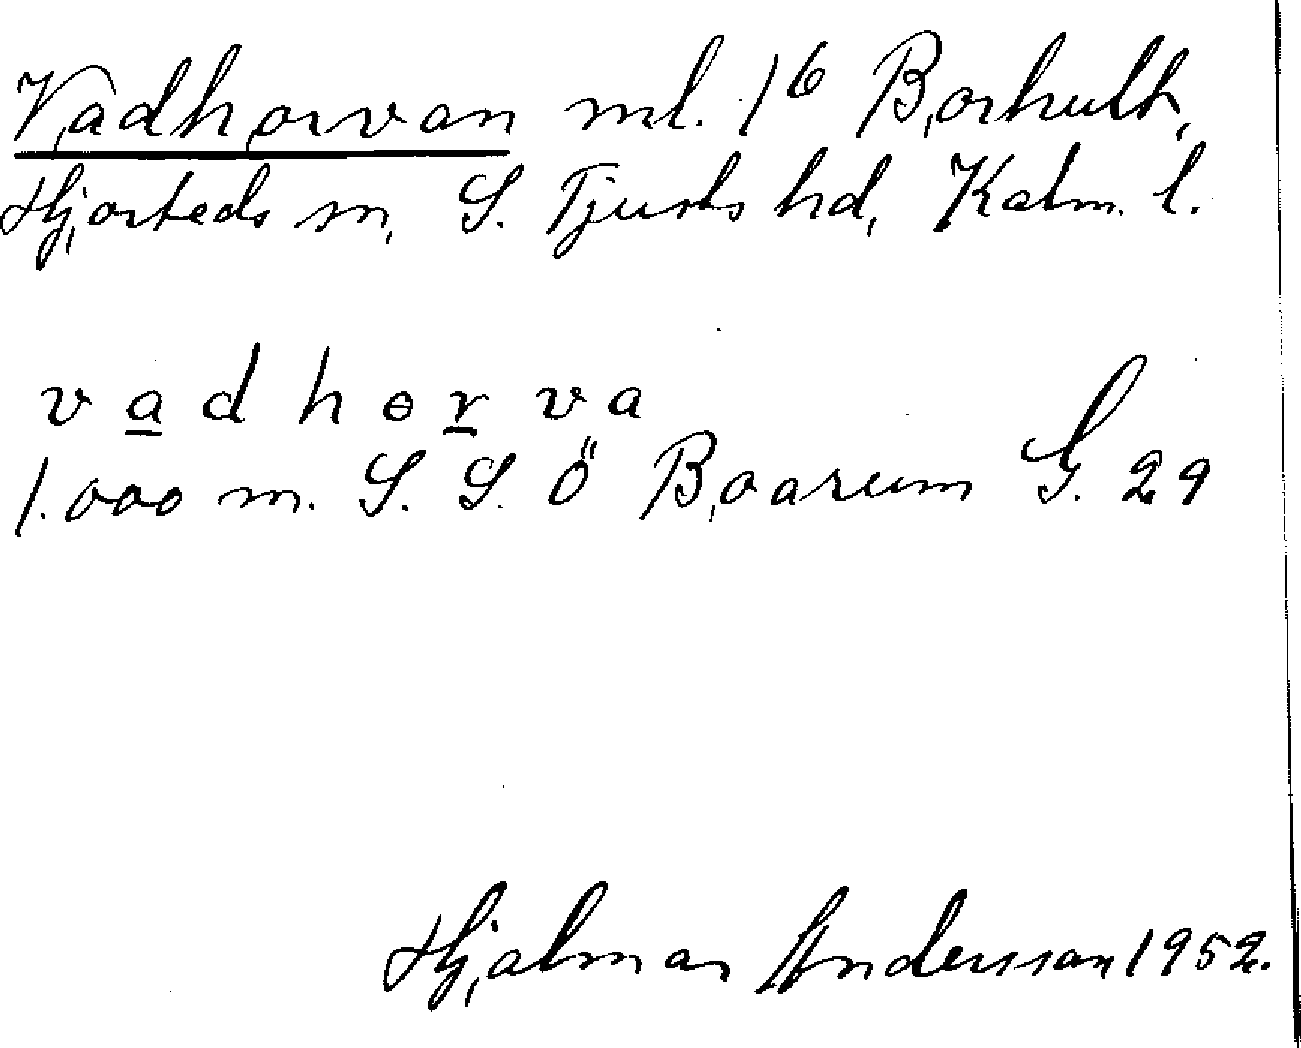 Vadhorvan ml. 1⁶ Borhult,
Hjorteds sn, S. Tjusts hd, Kalm. l.
v a̲ d h ɵ r̲ v a
1.000 m. S. S. Ö Boarum G. 29
Hjalmar Andersson 1952.